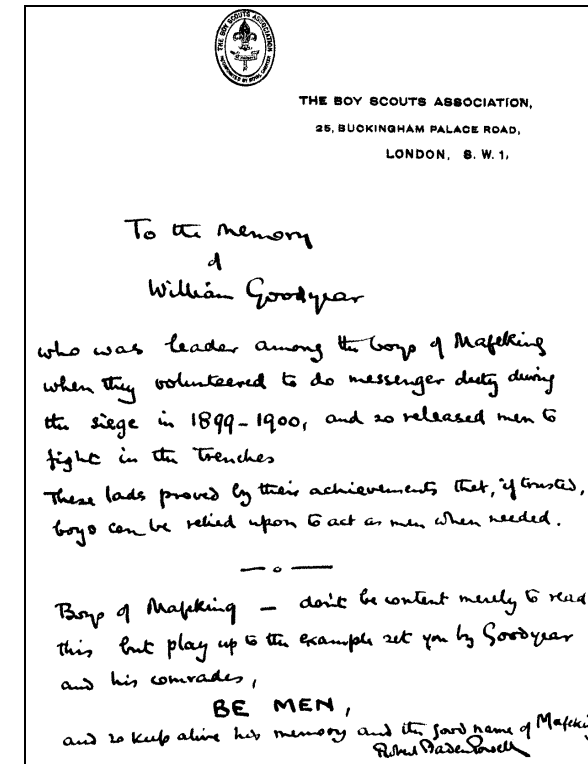 THE BOY SCOUTS ASSOCIATION
INCORPORATED BY ROYAL CHARTER
THE BOY SCOUTS ASSOCIATION,
25, BUCKINGHAM PALACE ROAD,
LONDON, S. W. 1.
To the memory
of
William Goodyear
who was leader among the boys of Mafeking
when they volunteered to do messenger duty during
the siege in 1899-1900, and so released men to
fight in the trenches
These lads proved by their achievements that, if trusted,
boys can be relied upon to act as men when needed.
— o —
Boys of Mafeking — don't be content merely to read
this but play up to the example set you by Goodyear
and his comrades,
BE MEN,
and so keep alive his memory and the good name of Mafeking
Robert Baden Powell